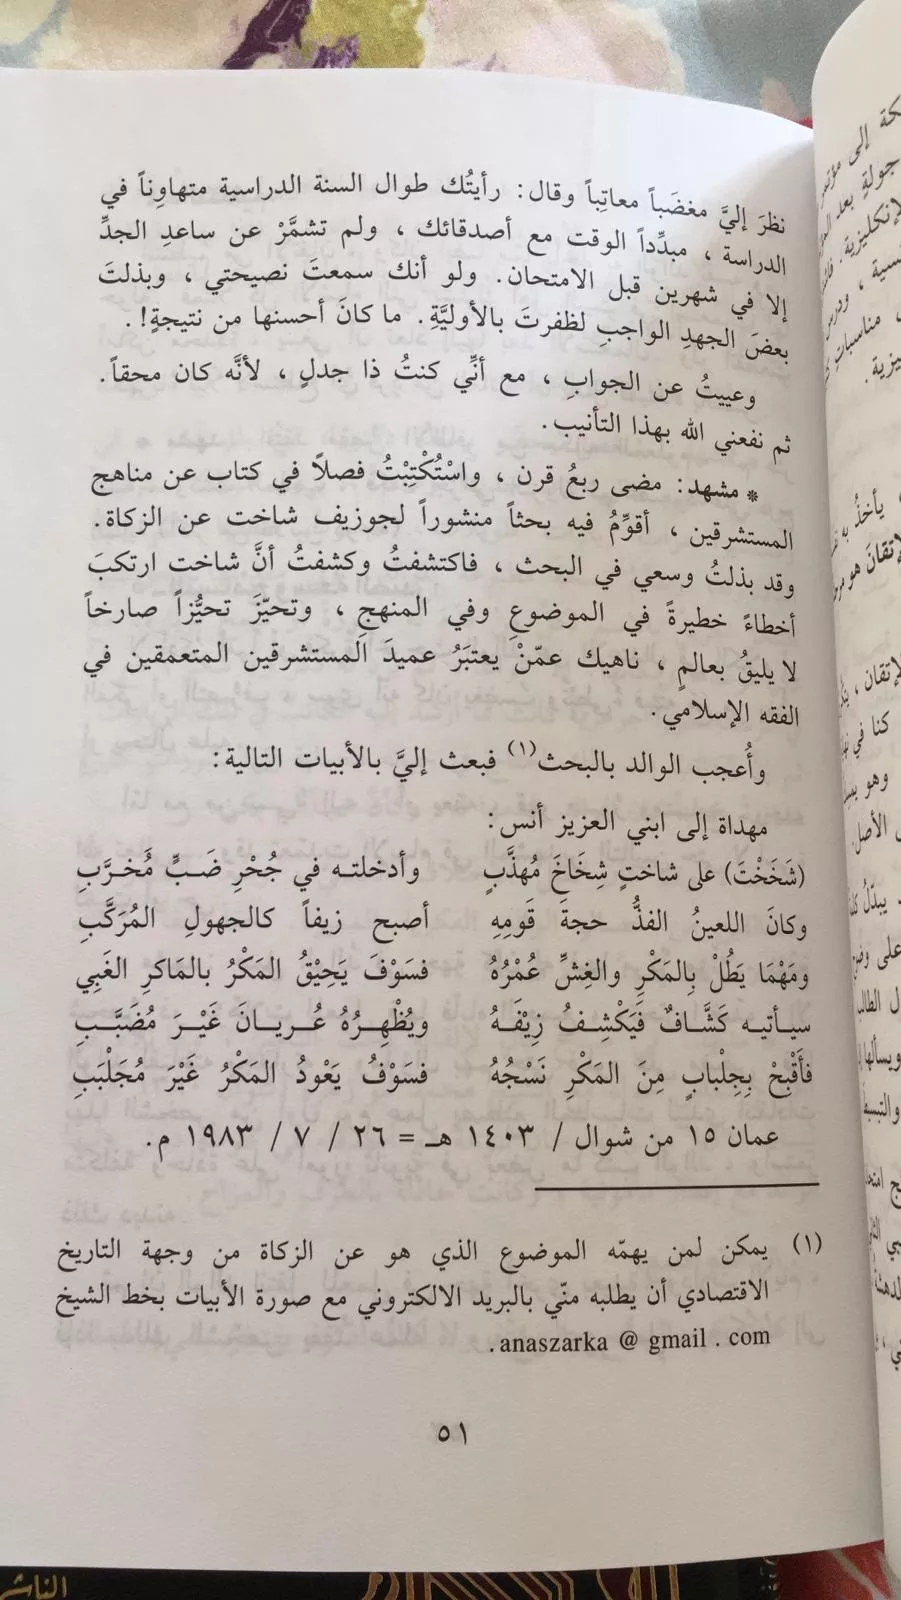 نظرَ إليَّ مغضَباً معاتِباً وقال: رأيتُك طوال السنة الدراسية متهاوِناً في
الدراسة ، مبدِّداً الوقت مع أصدقائك ، ولم تشمَّرْ عن ساعدِ الجدِّ
إلا في شهرين قبل الامتحان. ولو أنك سمعتَ نصيحتي ، وبذلتَ
بعضَ الجهدِ الواجبِ لظفرتَ بالأوليَّةِ. ما كانَ أحسنها من نتيجةٍ!.
وعييتُ عن الجوابِ ، مع أنِّي كنتُ ذا جدلٍ ، لأنَّه كان محقاً.
ثم نفعني الله بهذا التأنيب.
* مشهد: مضى ربعُ قرن ، واسْتُكْتِبْتُ فصلاً في كتاب عن مناهج
المستشرقين ، أقوِّمُ فيه بحثاً منشوراً لجوزيف شاخت عن الزكاة.
وقد بذلتُ وسعي في البحث ، فاكتشفتُ وكشفتُ أنَّ شاخت ارتكبَ
أخطاءً خطيرةً في الموضوعِ وفي المنهجِ ، وتحيّزَ تحيُّزاً صارخاً
لا يليقُ بعالمٍ ، ناهيك عمّنْ يعتبَرُ عميدَ المستشرقين المتعمقين في
الفقه الإسلامي.
وأُعجب الوالد بالبحث(١) فبعث إليَّ بالأبيات التالية:
مهداة إلى ابني العزيز أنس:
(شَخَخْتَ) على شاختٍ شِخَاخَ مُهذَّبٍ وأدخلتـه في جُحْرِ ضَـبٍّ مُخـرَّبِ
وكانَ اللعينُ الفذُّ حجةَ قَومِهِ أصبح زيفاً كالجهولِ المُرَكَّبِ
ومَهْمَا يَطُلْ بِالمَكْرِ والغِشِّ عُمْرُهُ فسَوْفَ يَحِيْقُ المَكْرُ بالمَاكرِ الغَبِي
سيـأتيـه كَشَّافٌ فَيَكْشِفُ زِيْفَـهُ ويُظْهِـرُهُ عُـريـانَ غَيْـرَ مُضَبَّـبِ
فأَقْبِحْ بِجِلْبابٍ مِنَ المَكْرِ نَسْجُهُ فسَوْفُ يَعْوْدُ المَكْرُ غَيْرَ مُجَلْبَبِ
عمان ١٥ من شوال / ١٤٠٣ هـ = ٢٦ / ٧ / ١٩٨٣ م.
(١) يمكن لمن يهمّه الموضوع الذي هو عن الزكاة من وجهة التاريخ
الاقتصادي أن يطلبه منّي بالبريد الالكتروني مع صورة الأبيات بخط الشيخ
anaszarka @ gmail . com.
٥١
الناشر